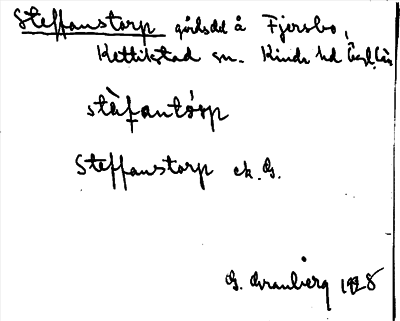 Steffanstorp gårdsdel å Fjersbo,
Kettilstad sn. Kinds hd Östg. län
stàfantórp
Steffanstorp ek. G.
G. Granberg 1928